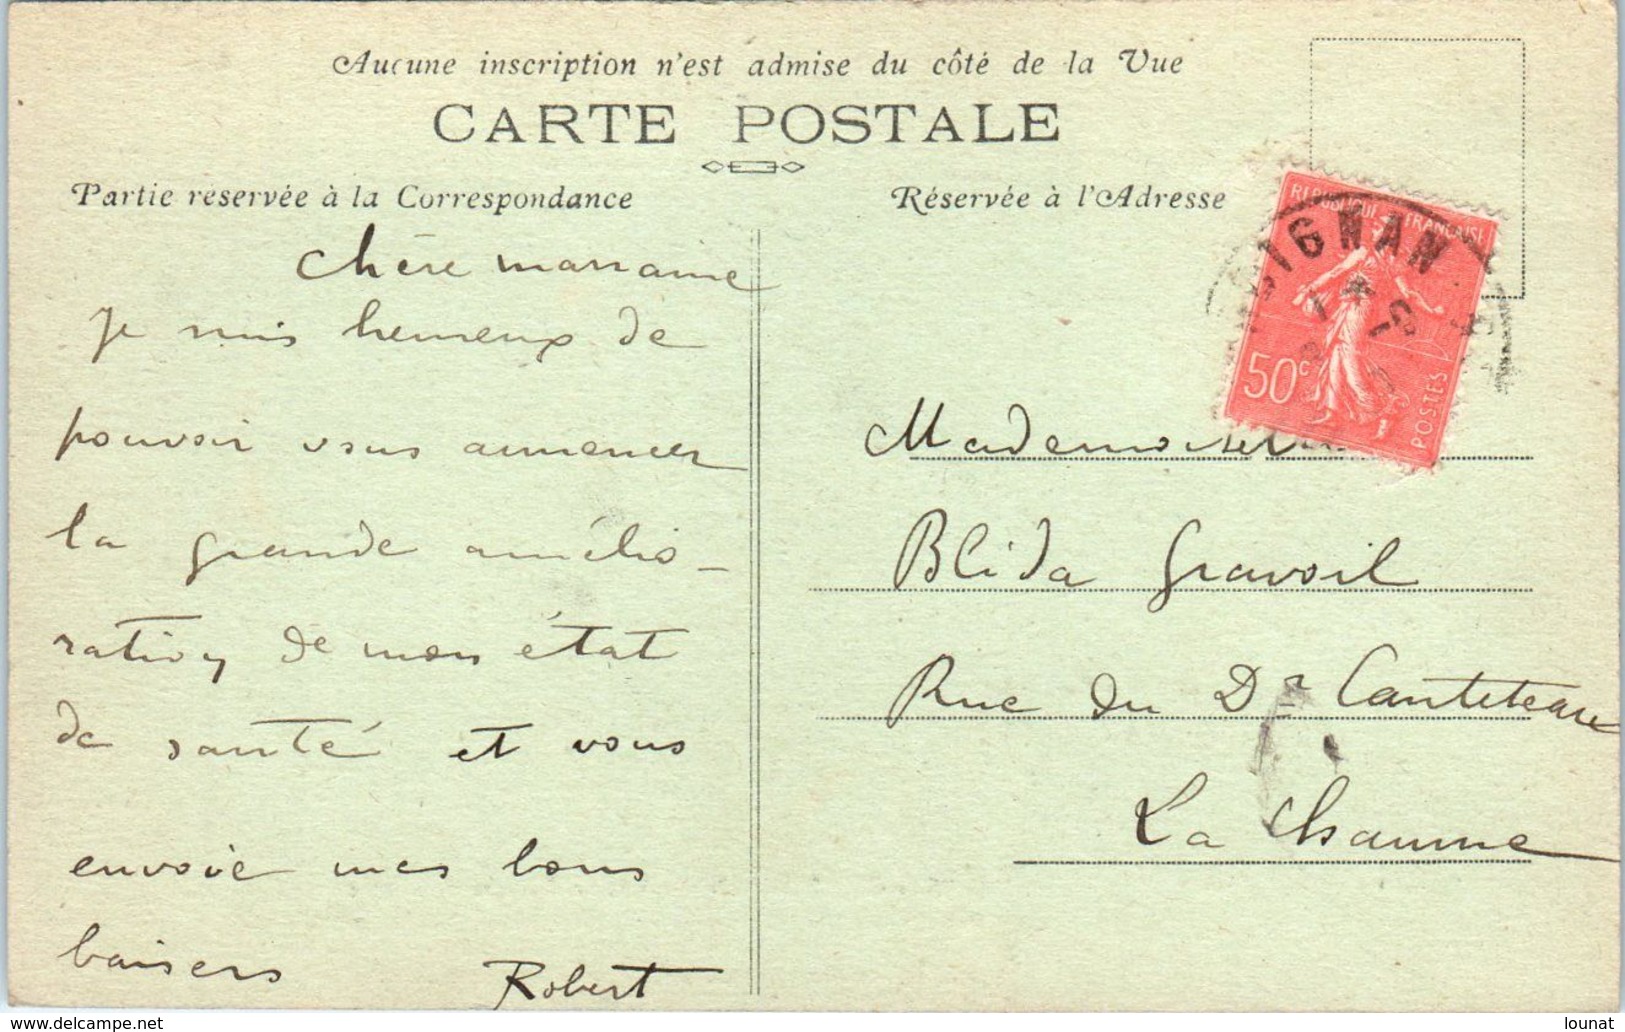 Aucune inscription n'est admise du côté de la Vue
CARTE POSTALE
Partie réservée à la Correspondance
Réservée à l'Adresse
REPUBLIQUE FRANÇAISE
IGNAN
50c
POSTES
Chère marraine
Je suis heureux de
pouvoir vous annoncer
la grande amélio-
ration de mon état
de santé et vous
envoie mes bons
baisers Robert
Mademoisel
Blida Gravoil
Rue du Dr Canteteau
La Chaume
delcampe.net
lounat